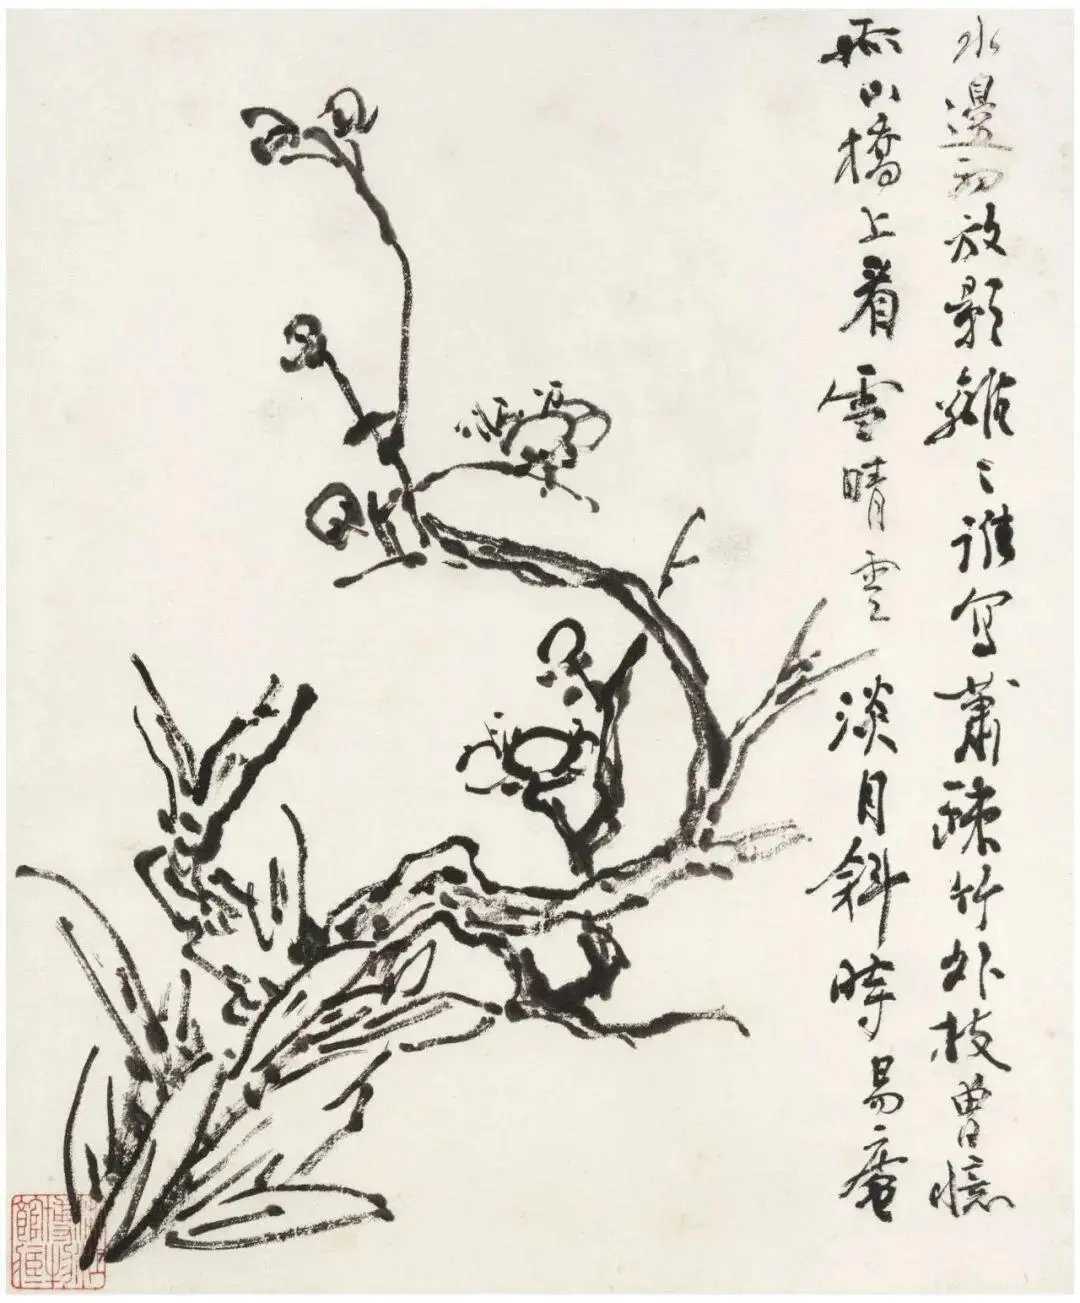 水邊初放影離〻誰寫蕭踈竹外枝曽憶
孤山橋上看雪晴雲淡月斜時易庵